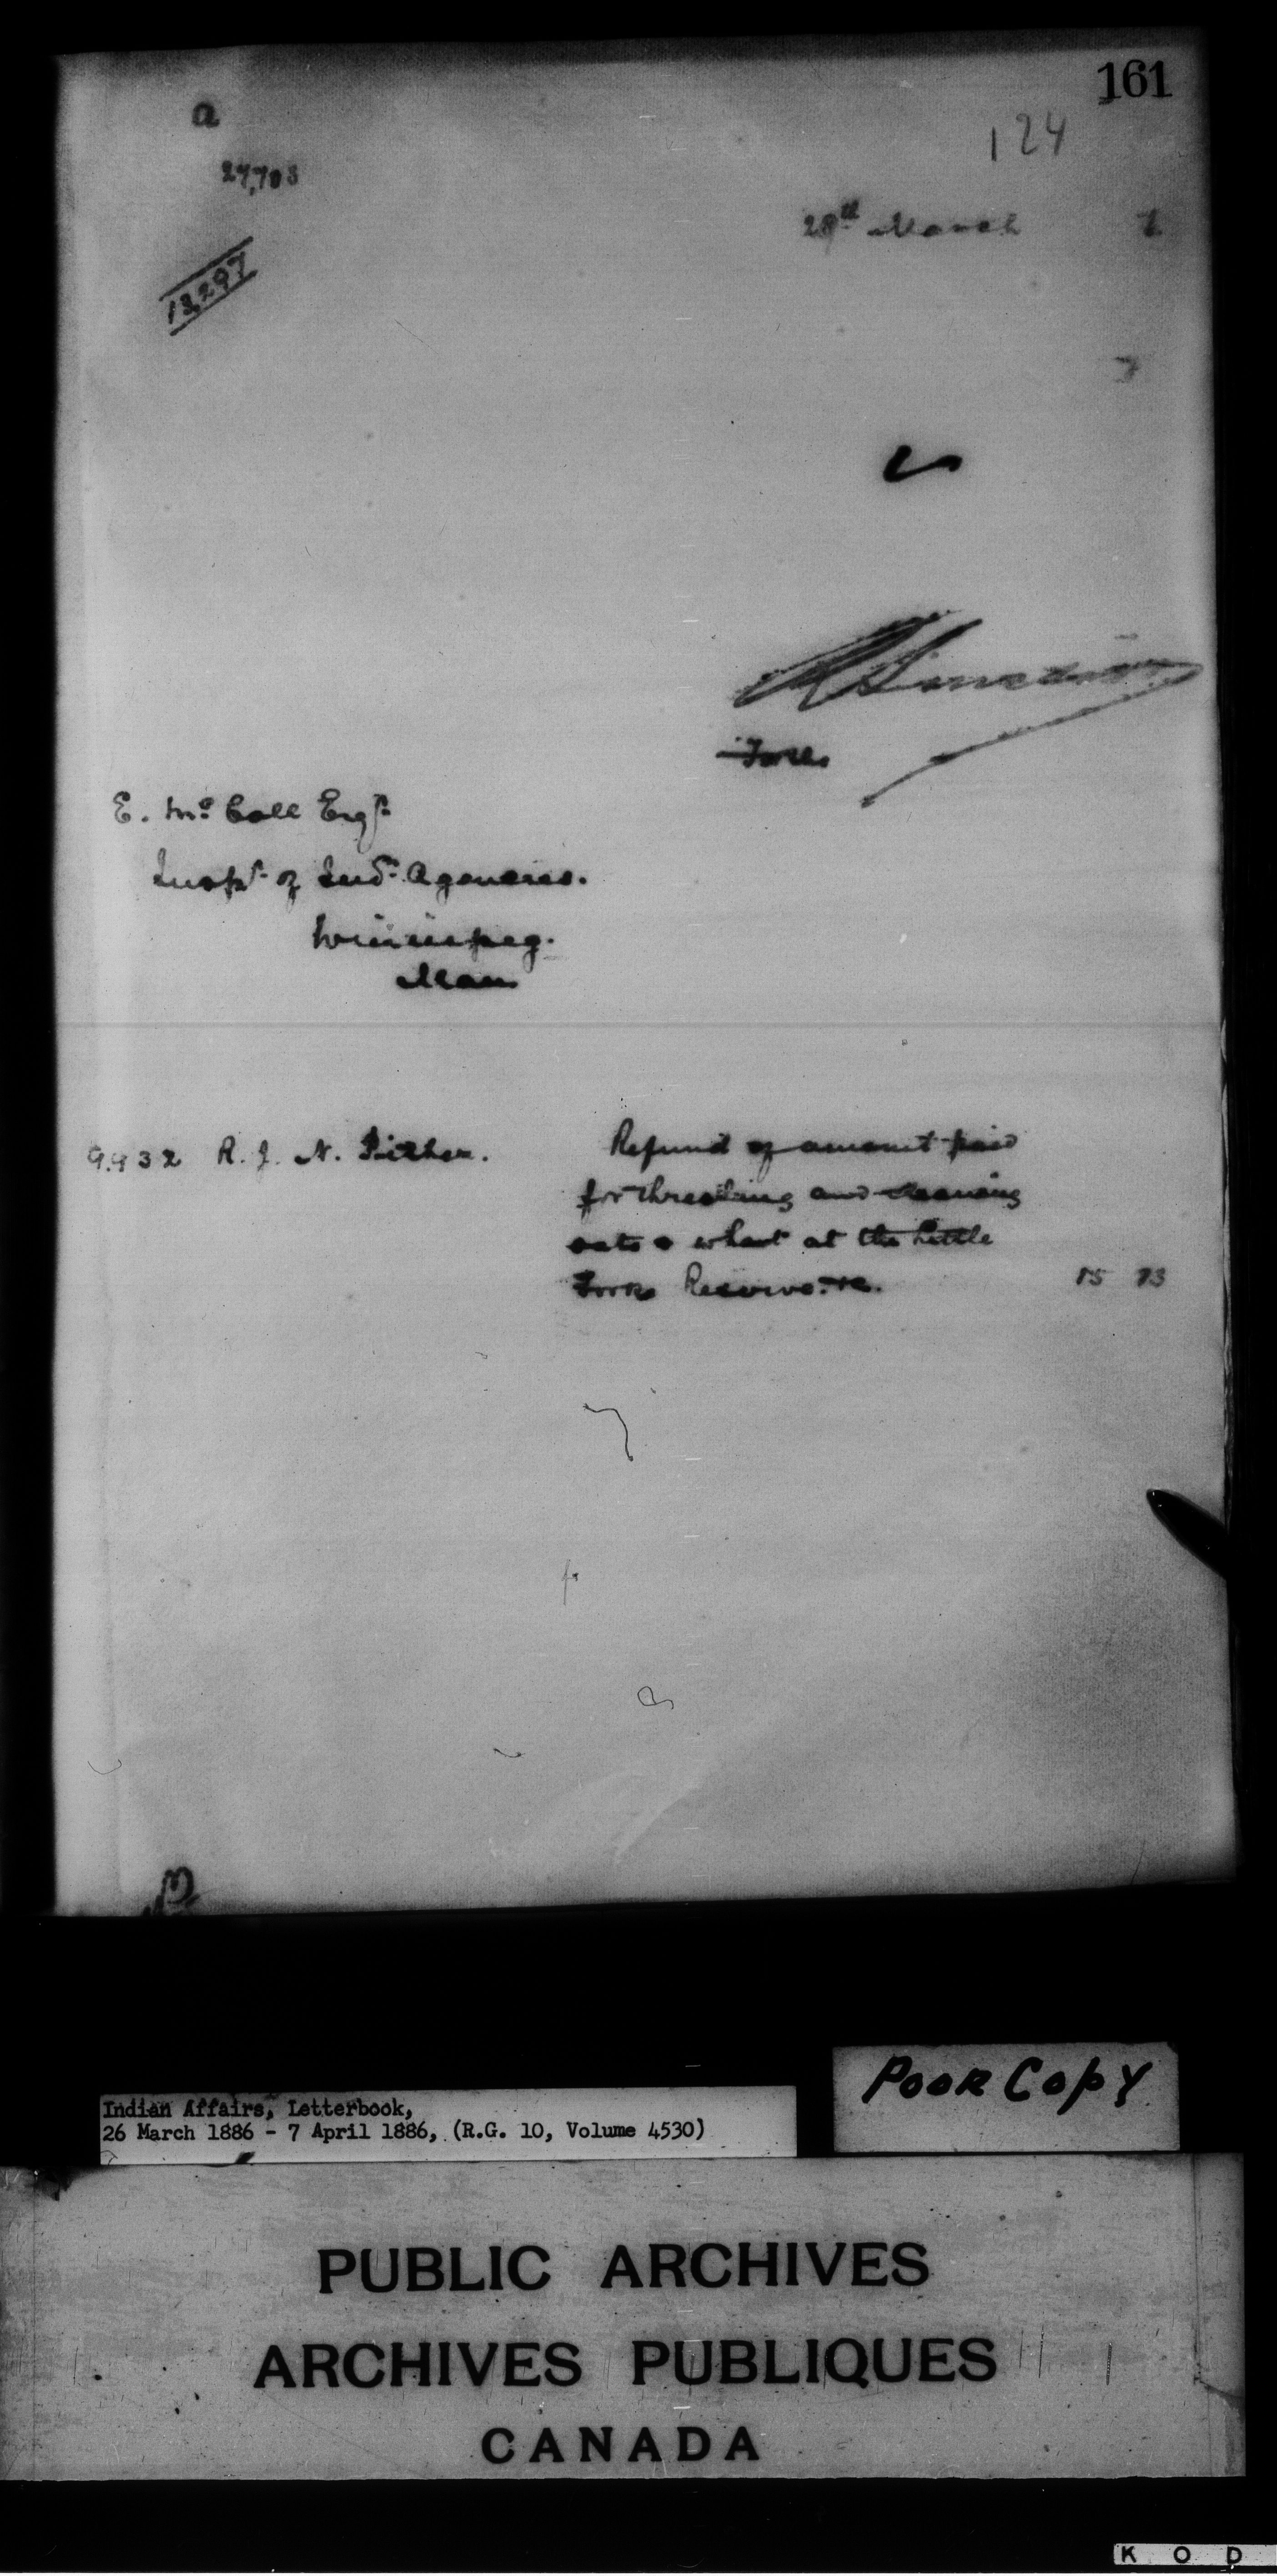 161
a
124
27,703
28th March 6
13,297
E. McColl Esqr.
Inspr. of Indn. Agencies.
Winnipeg.
Man
9932 R. J. N. Pither. Refund of amount paid
for threshing and cleaning
oats & wheat at the Little
Forks Reserve &c. 15 73
POOR COPY
Indian Affairs, Letterbook,
26 March 1886 - 7 April 1886, (R.G. 10, Volume 4530)
PUBLIC ARCHIVES
ARCHIVES PUBLIQUES
CANADA
K O D